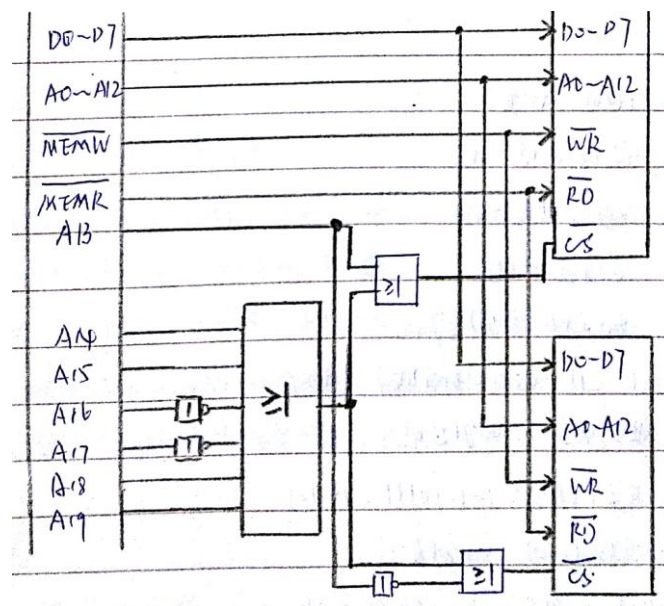 D0~D7
A0~A12
M̅E̅M̅W̅
M̅E̅M̅R̅
A13
A14
A15
A16
A17
A18
A19
1
1
≥1
≥1
1
≥1
D0~D7
A0~A12
W̅R̅
R̅D̅
C̅S̅
D0~D7
A0~A12
W̅R̅
R̅D̅
C̅S̅